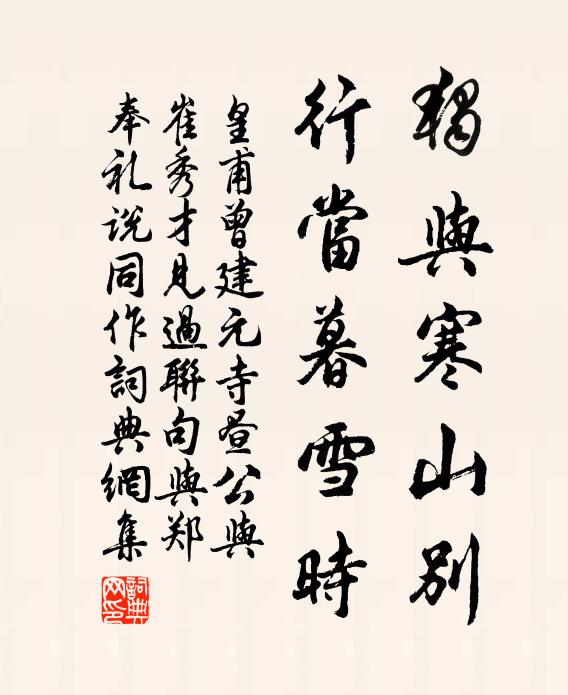 獨與寒山別
行當暮雪時
皇甫曾建元寺昼公與
崔秀才見過聯句與郑
奉礼说同作詞典網集
詞典网印